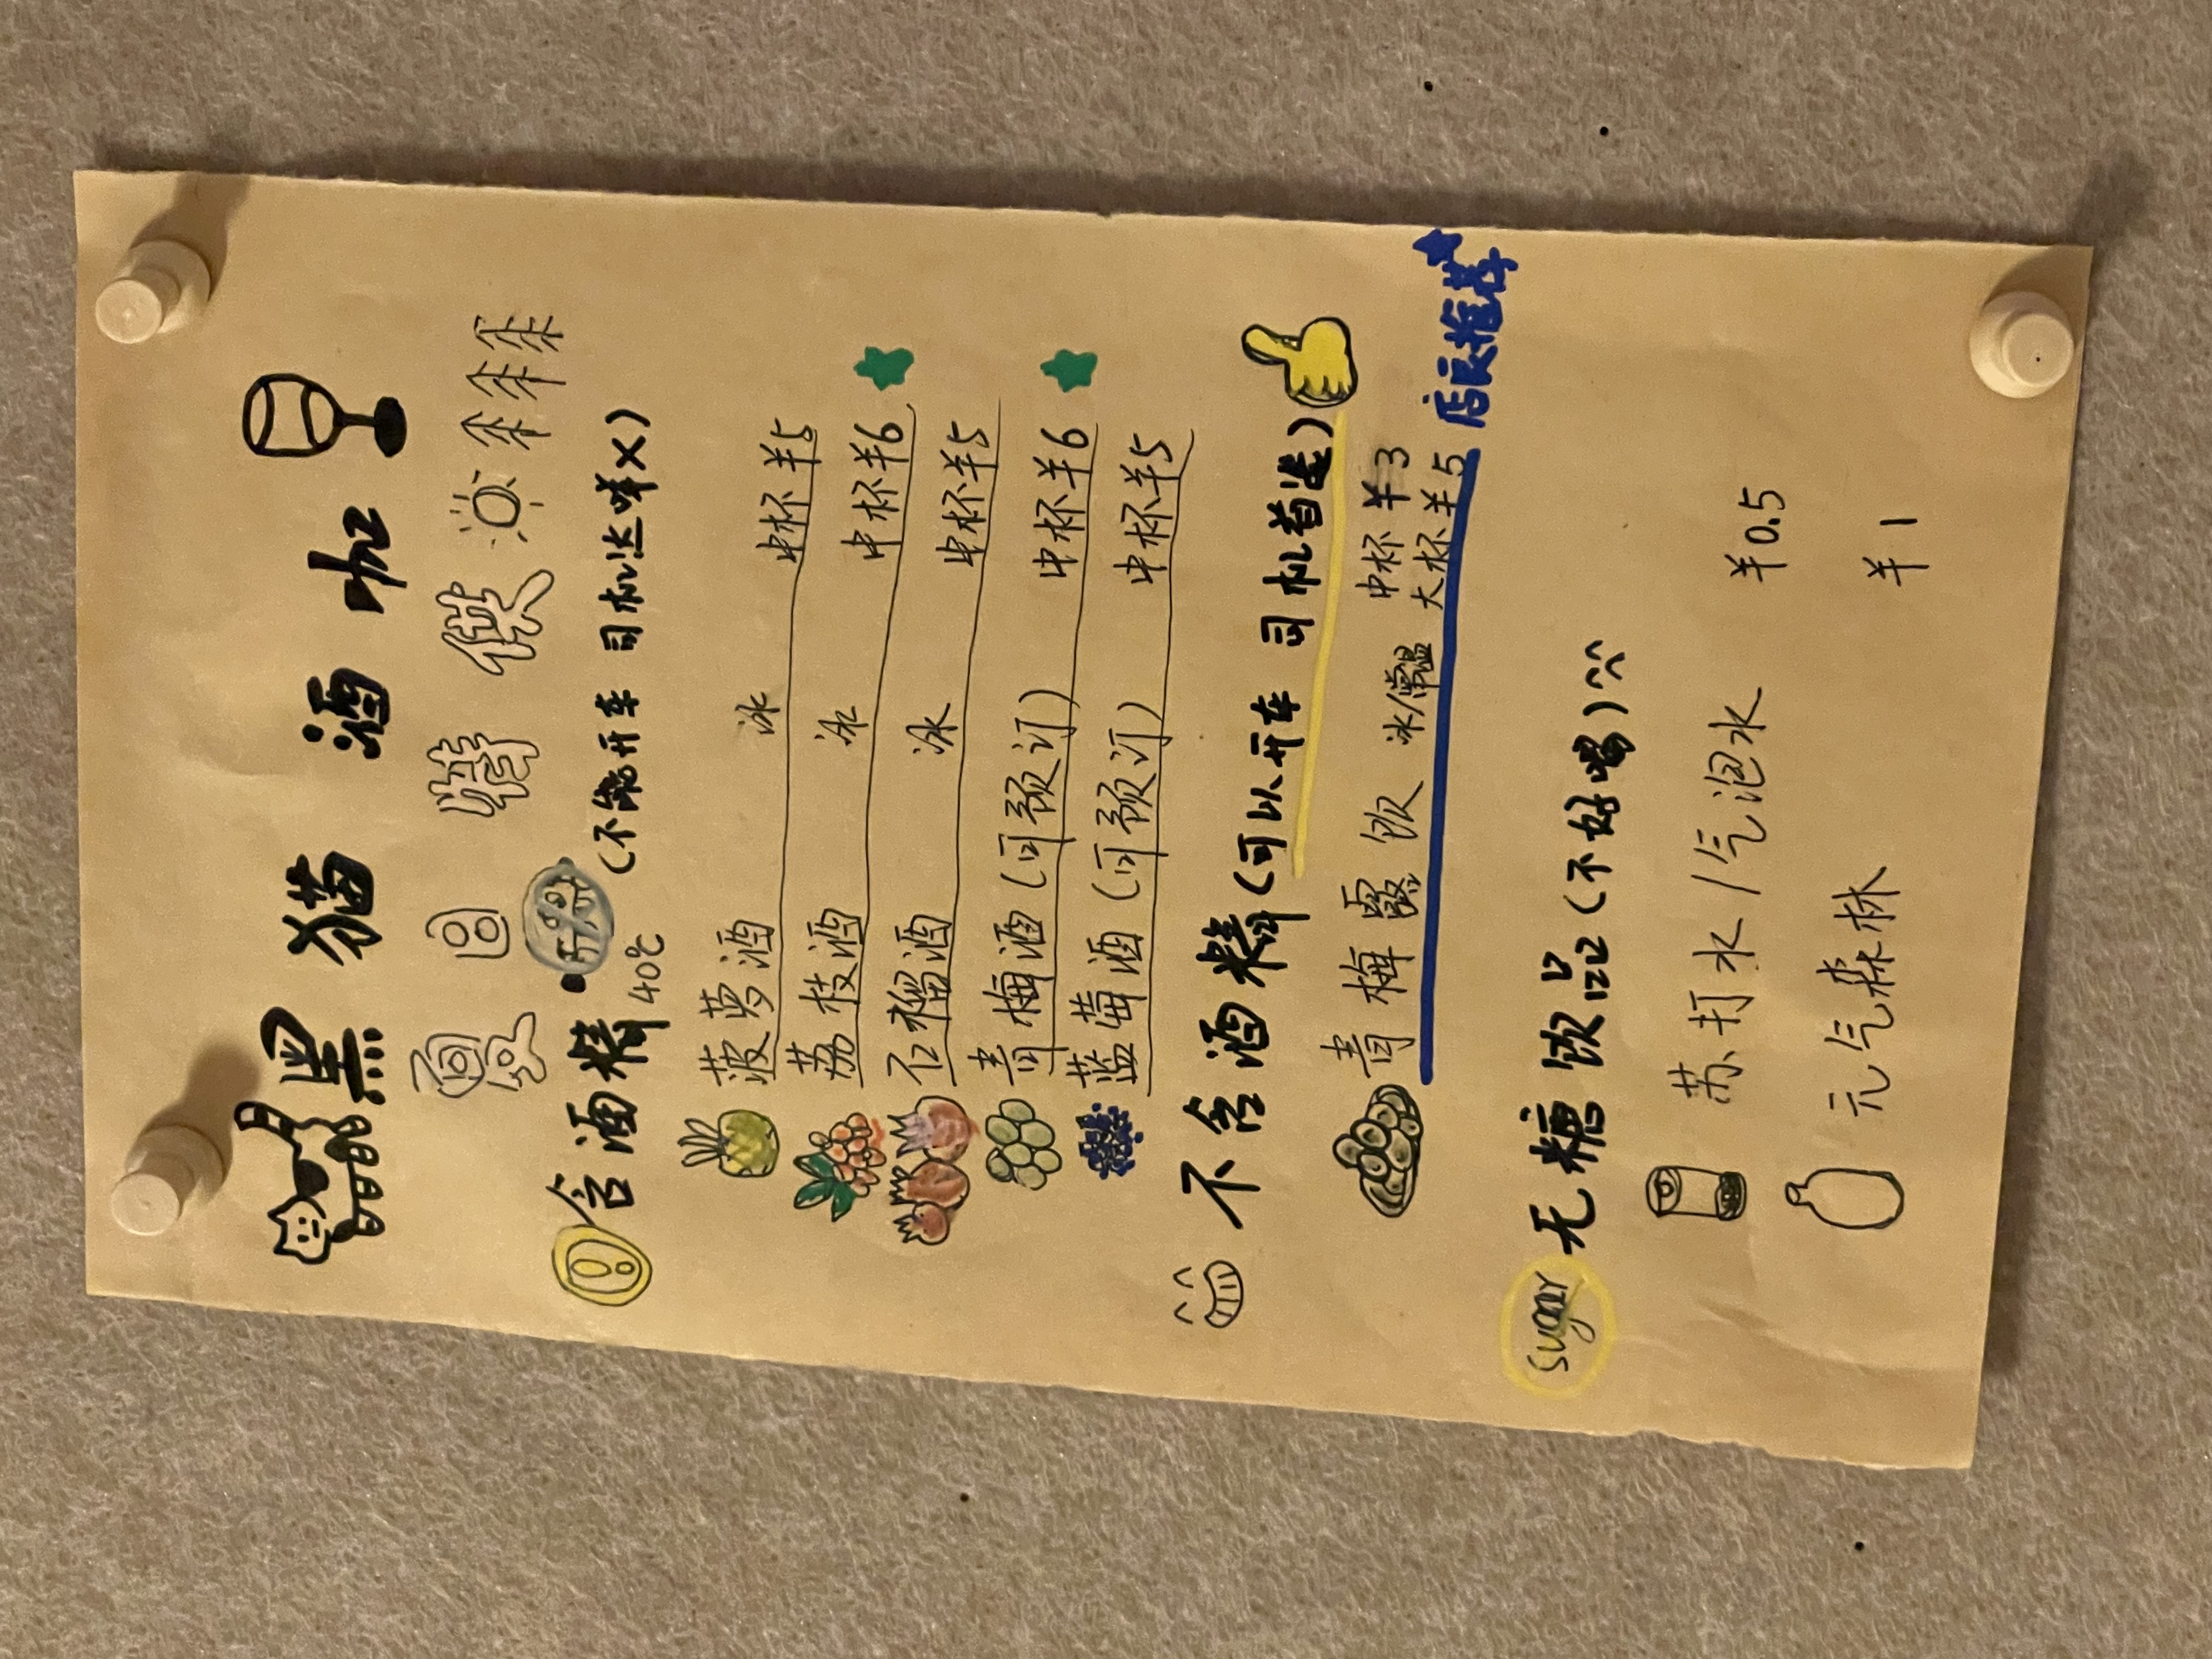 黑猫酒咖
夏日特供
含酒精 (不能开车 司机达咩X)
40℃
菠萝酒 冰 中杯羊5
荔枝酒 冰 中杯羊6
石榴酒 冰 中杯羊5
青梅酒(可预订) 中杯羊6
蓝莓酒(可预订) 中杯羊5
不含酒精(可以开车 司机首选)
青梅露饮 冰/常温 中杯羊3
大杯羊5
店长推荐
sugar 无糖饮品(不好喝)
苏打水/气泡水 羊0.5
元气森林 羊1